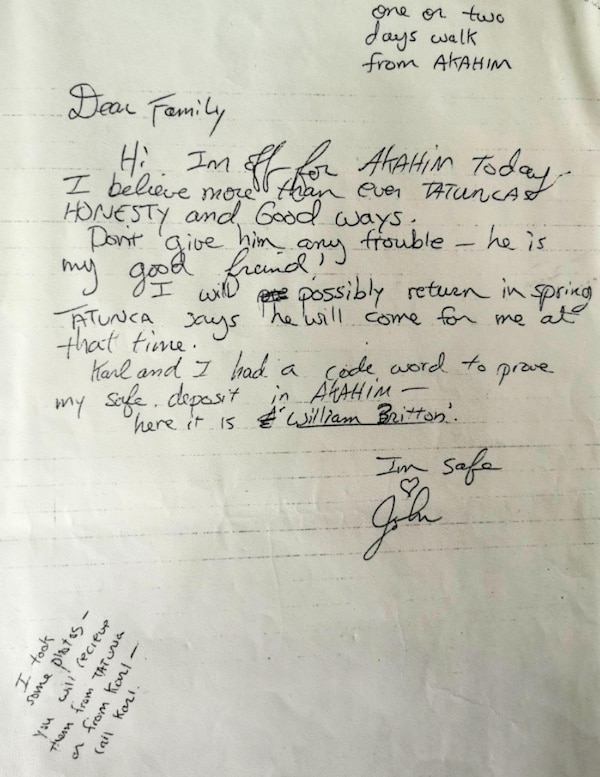 one or two
days walk
from AKAHIM
Dear Family
Hi Im off for AKAHIM Today.
I believe more than ever TATUNCAS
HONESTY and Good ways.
Dont give him any trouble – he is
my good freind!
I will possibly return in spring
TATUNCA says he will come for me at
that time.
Karl and I had a code word to prove
my safe. deposit in AKAHIM –
here it is "William Britton".
Im safe
♡
John
I took
some photos –
you will recieve
them from TATUNCA
or from Karl –
call Karl.